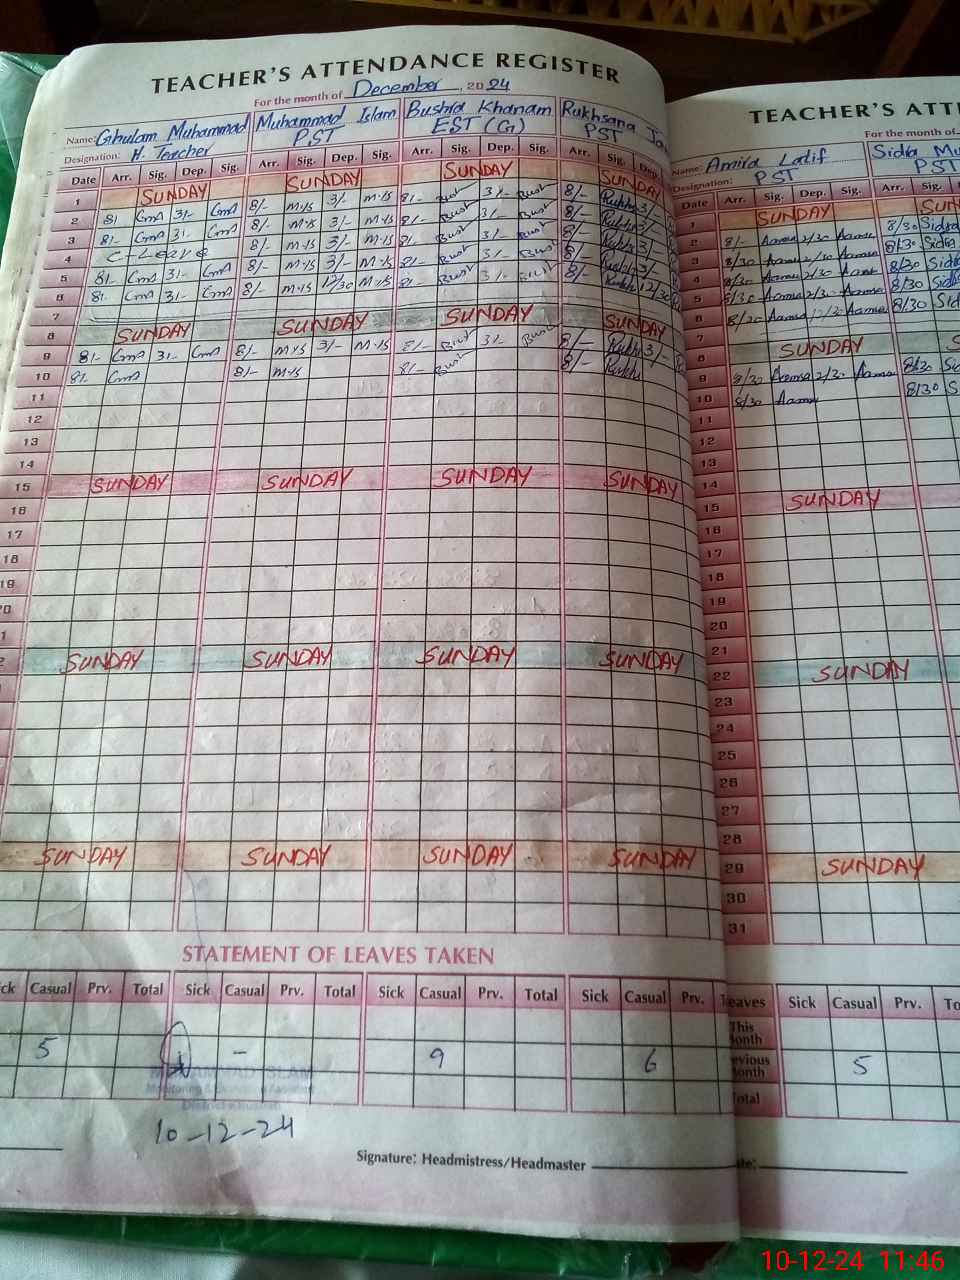 TEACHER'S ATTENDANCE REGISTER
For the month of December, 2024
Name: Ghulam Muhammad Muhammad Islam Bushra Khanam Rukhsana
Designation: H. Teacher PST EST (G) PST
Date Arr. Sig. Dep. Sig. Arr. Sig. Dep. Sig. Arr. Sig. Dep. Sig. Arr. Sig. Dep.
1 SUNDAY SUNDAY SUNDAY SUNDAY
2 8/- 3/- 8/- M-Is 3/- M-Is 8/- Bush 3/- Bush 8/- Rukhs 3/-
3 8/- 3/- 8/- M-Is 3/- M-Is 8/- Bush 3/- Bush 8/- Rukhs 3/-
4 C-Leave 8/- M-Is 3/- M-Is 8/- Bush 3/- Bush 8/- Rukhs 3/-
5 8/- 3/- 8/- M-Is 3/- M-Is 8/- Bush 3/- Bush 8/- Rukhs 3/-
6 8/- 3/- 8/- M-Is 12/30 M-Is 8/- Bush 3/- Bush 8/- Rukhs 12/30
7
8 SUNDAY SUNDAY SUNDAY SUNDAY
9 8/- 3/- 8/- M-Is 3/- M-Is 8/- Bush 3/- Bush 8/- Rukhs 3/-
10 8/- 8/- M-Is 8/- Bush 8/- Rukhs
11
12
13
14
15 SUNDAY SUNDAY SUNDAY SUNDAY
16
17
18
19
20
SUNDAY SUNDAY SUNDAY SUNDAY
SUNDAY SUNDAY SUNDAY SUNDAY
STATEMENT OF LEAVES TAKEN
Casual Prv. Total Sick Casual Prv. Total Sick Casual Prv. Total Sick Casual Prv.
5 - 9 6
MUHAMMAD ISLAM
10-12-24
Signature: Headmistress/Headmaster
TEACHER'S ATTE
For the month of
Name: Amira Latif Sidra
Designation: PST PST
Date Arr. Sig. Dep. Sig. Arr. Sig.
1 SUNDAY SUN
2 8/- Aamna 2/30 Aamna 8/30 Sidra
3 8/30 Aamna 2/30 Aamna 8/30 Sidra
4 8/30 Aamna 2/30 Aamna 8/30 Sidra
5 8/30 Aamna 2/30 Aamna 8/30 Sidra
6 8/30 Aamna 12/30 Aamna 8/30 Sid
7
8 SUNDAY S
9 8/30 Aamna 2/30 Aamna 8/30 Sid
10 8/30 Aamna 8/30 S
11
12
13
14
15 SUNDAY
16
17
18
19
20
21
22 SUNDAY
23
24
25
26
27
28
29 SUNDAY
30
31
Leaves Sick Casual Prv. To
This Month
Previous Month 5
Total
10-12-24 11:46